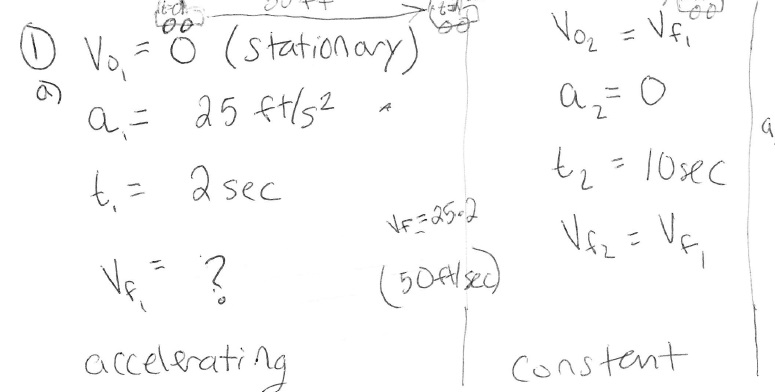 ① V₀₁ = 0 (stationary)
a)
a₁ = 25 ft/s²
t₁ = 2 sec
Vf = 25·2
Vf₁ = ?
(50ft/sec)
accelerating
V₀₂ = Vf₁
a₂ = 0
t₂ = 10sec
Vf₂ = Vf₁
constant